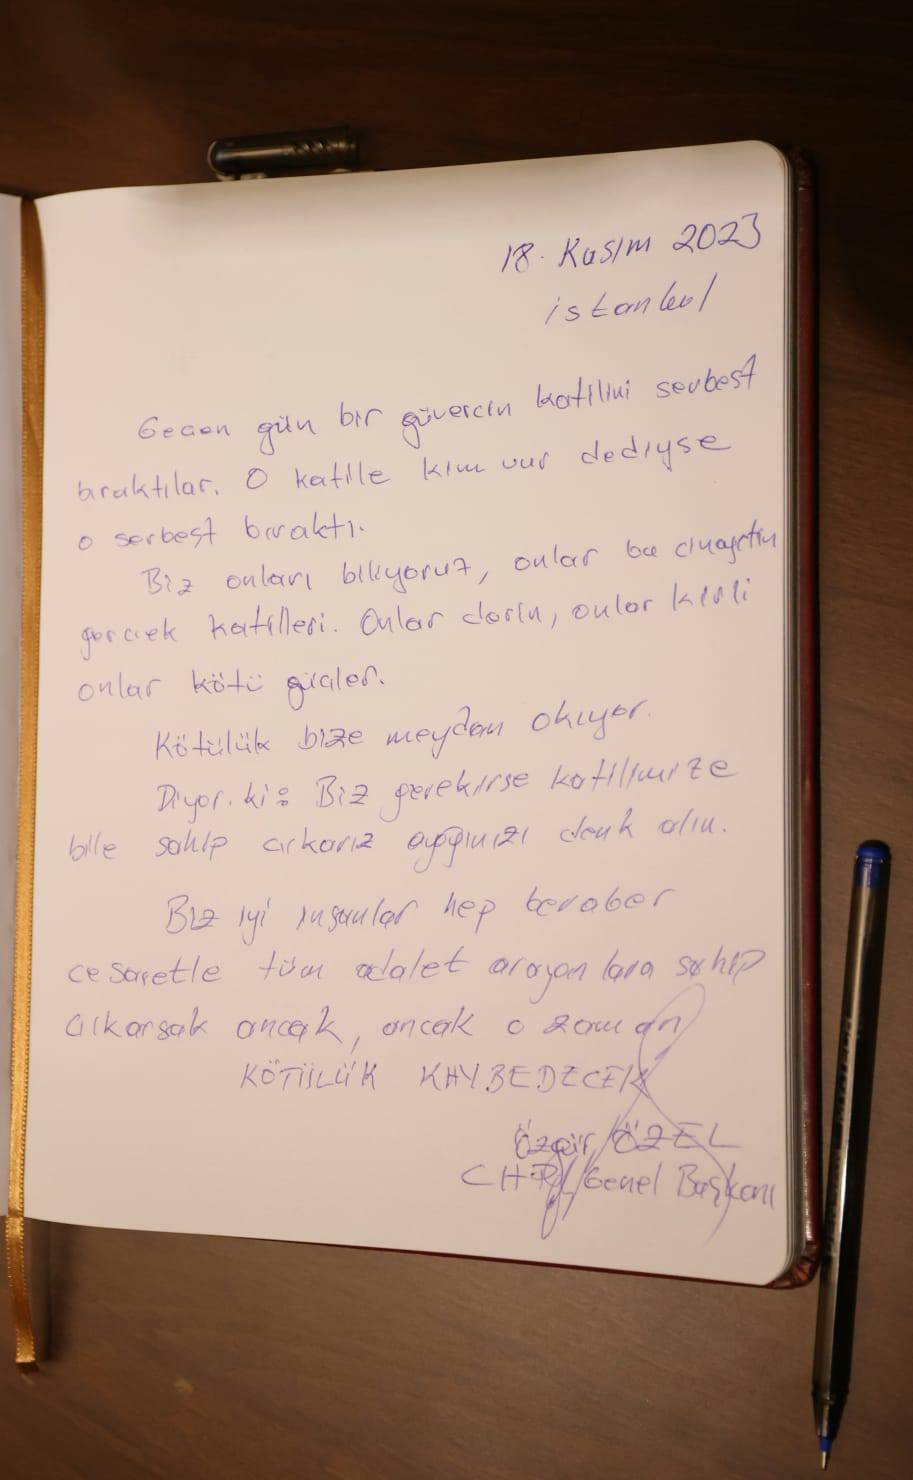 18. Kasım 2023
istanbul
Geçen gün bir güvercin katilini serbest
bıraktılar. O katile kim vur dediyse
o serbest bıraktı.
Biz onları biliyoruz, onlar bu cinayetin
gerçek katilleri. Onlar derin, onlar kirli
onlar kötü güçler.
Kötülük bize meydan okuyor.
Diyor.ki: Biz gerekirse katilimize
bile sahip çıkarız ayağınızı denk alın.
Biz iyi insanlar hep beraber
cesaretle tüm adalet arayanlara sahip
çıkarsak ancak, ancak o zaman
KÖTÜLÜK KAYBEDECEK
Özgür ÖZEL
CHP Genel Başkanı